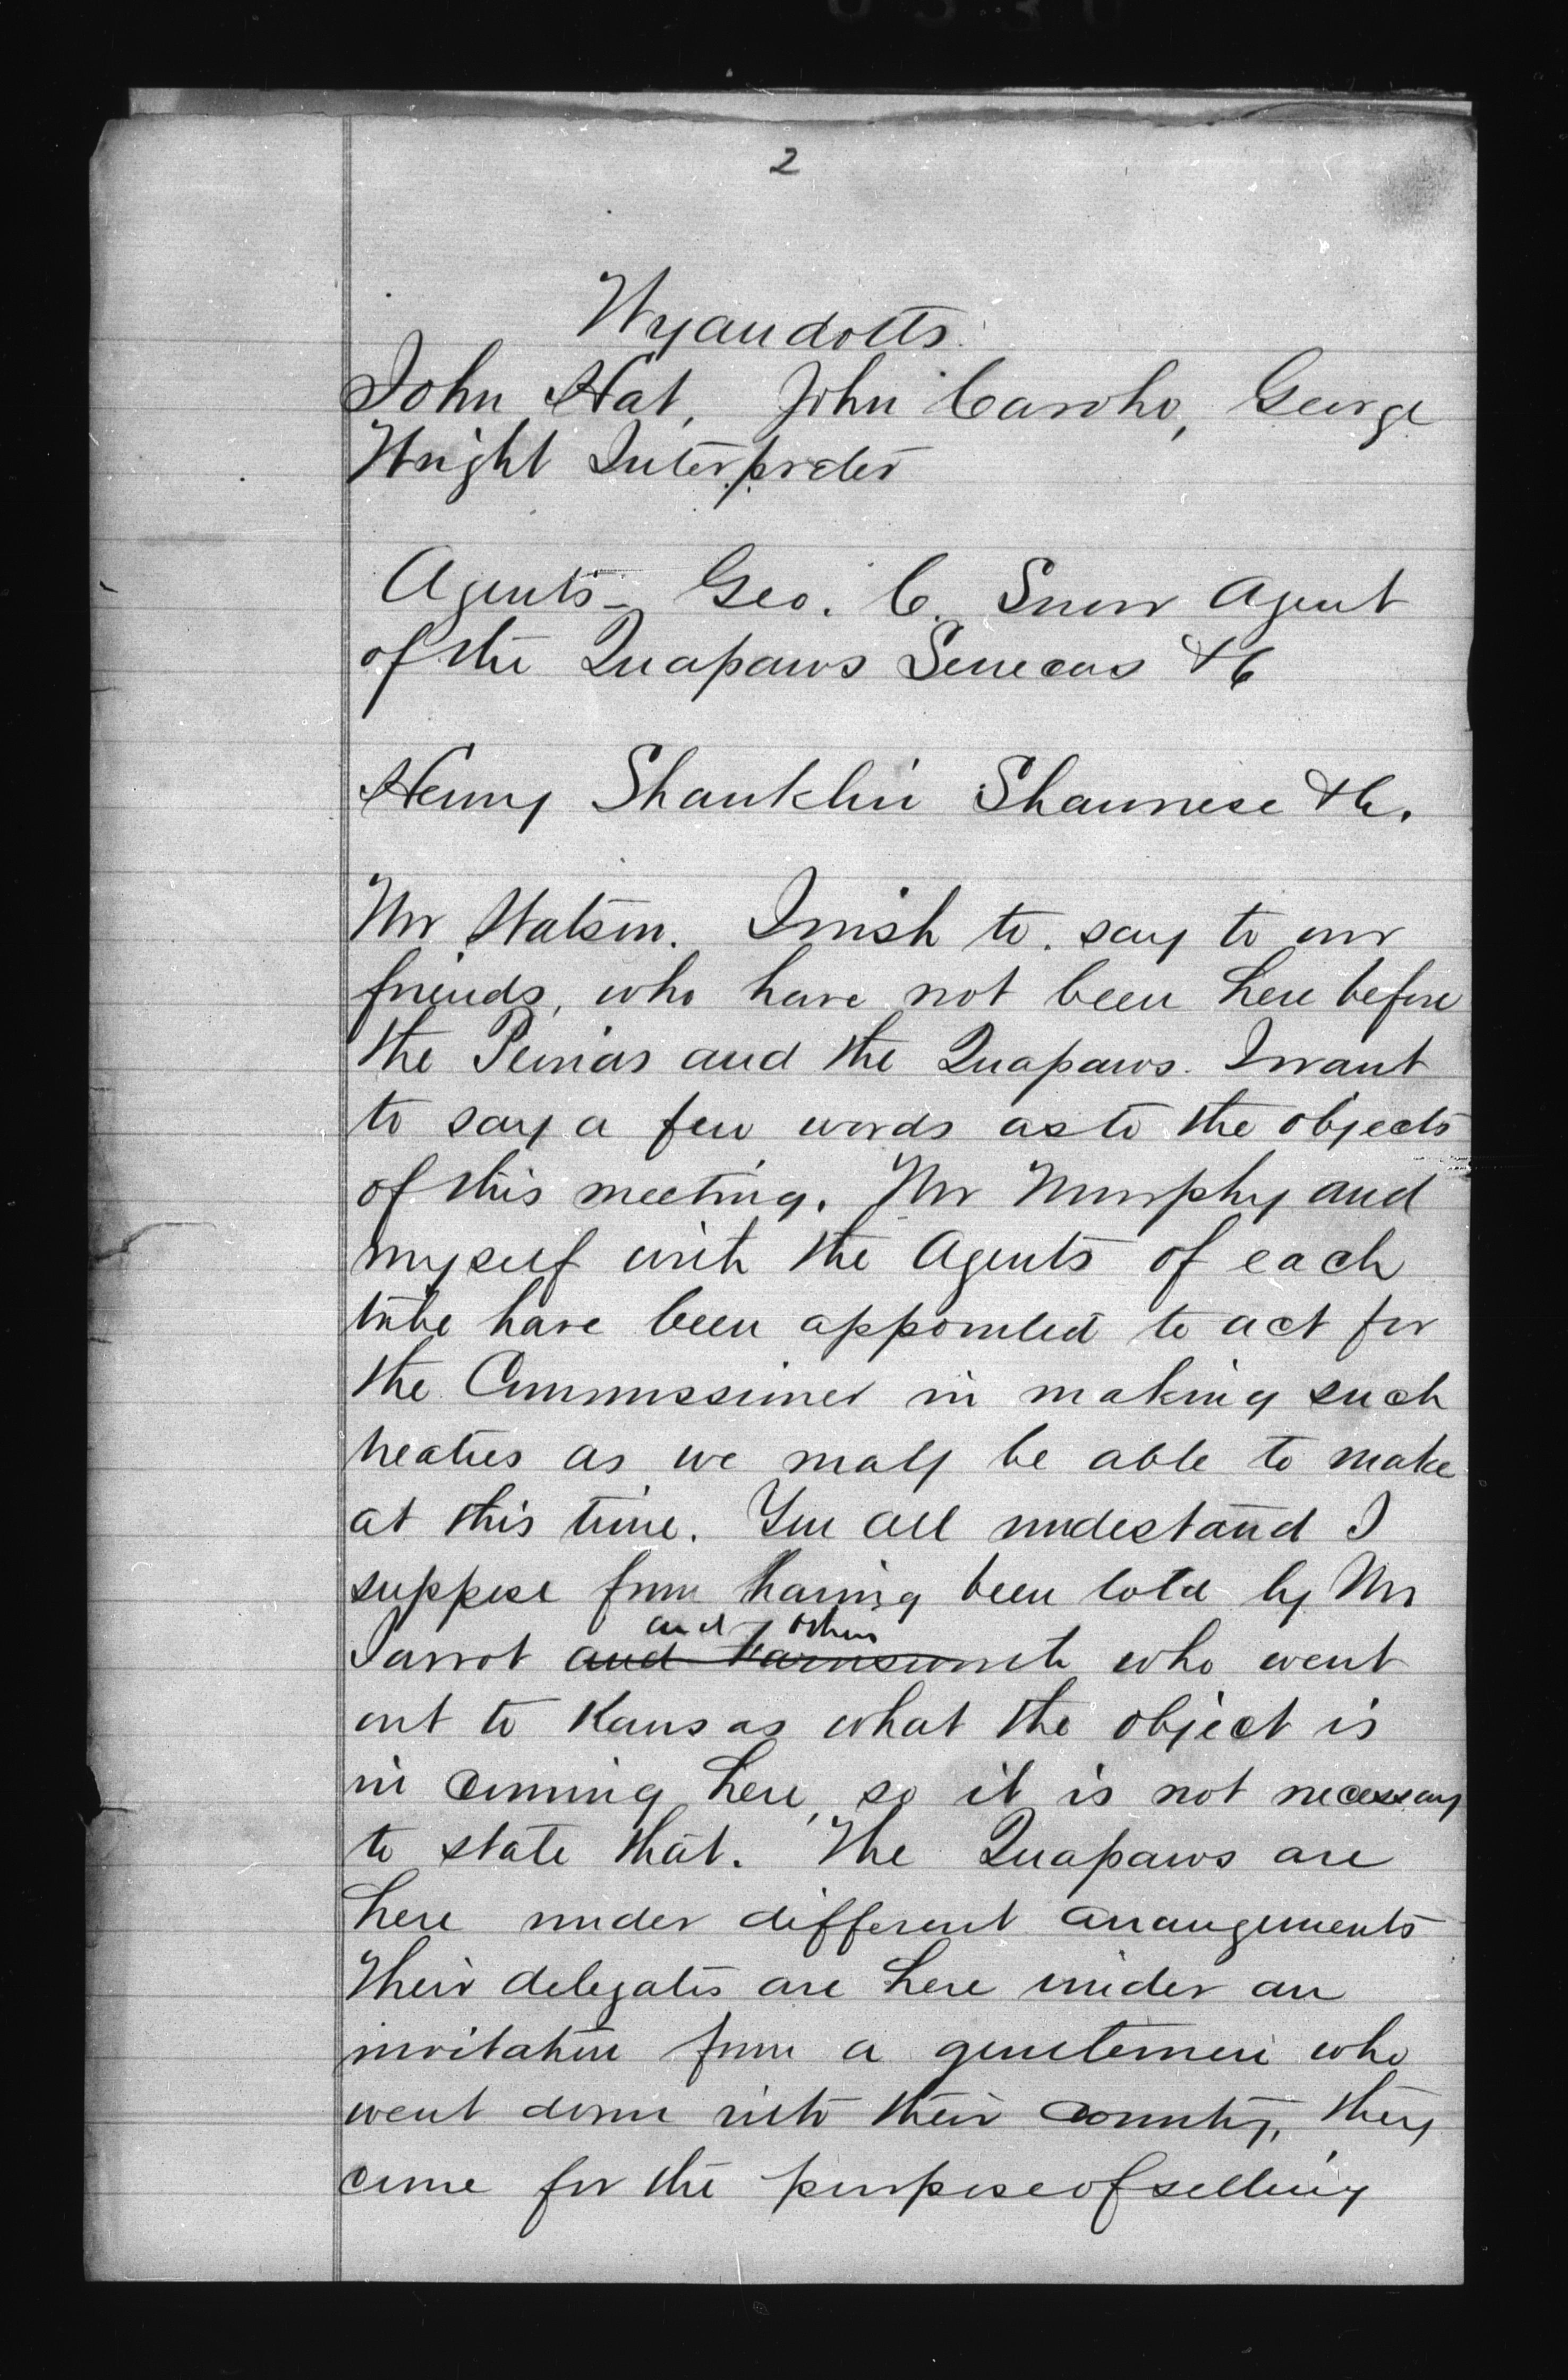 2
Wyandotts.
John Hat, John Caroho, George
Wright Interpreter
Agents - Geo. C. Snow Agent
of the Quapaws Senecas &c
Henry Shanklin Shawnese &c.
Mr Watson. I wish to say to our
friends, who have not been here before
the Peorias and the Quapaws. I want
to say a few words as to the objects
of this meeting. Mr Murphy and
myself with the Agents of each
tribe have been appointed to act for
the Commissioner in making such
treaties as we may be able to make
at this time. You all undestand I
suppose from having been told by Mr
and others
Parrot and who went
out to Kansas what the object is
in coming here, so it is not necessary
to state that. The Quapaws are
here under different arrangements
Their delegates are here under an
invitation from a gentlemen who
went down into their country, they
come for the purpose of selling